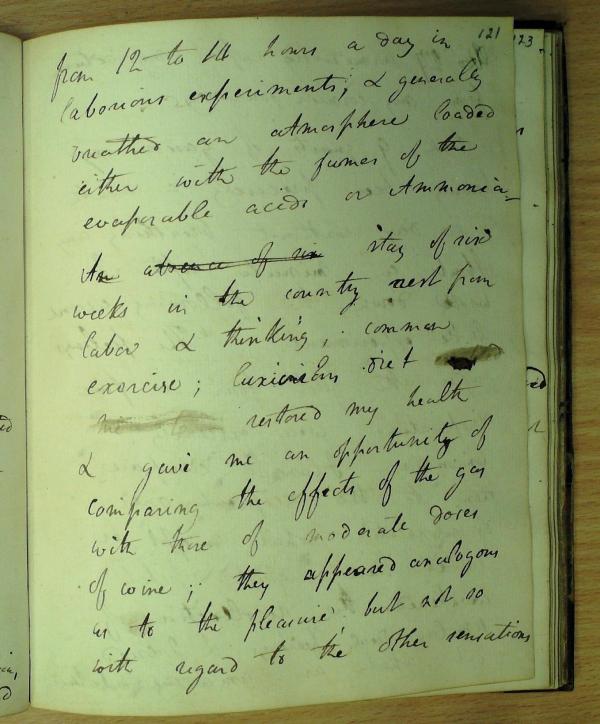 121
123
from 12 to 14 hours a day in
laborious experiments; & generally
breathed an atmosphere loaded
either with the fumes of the
evaporable acids or Ammonia–
An absence of six stay of six
weeks in the country rest from
labor & thinking; common
exercise; luxirious diet
restored my health
& gave me an opportunity of
comparing the effects of the gas
with those of moderate doses
of wine; they appeared analogous
as to the pleasure but not so
with regard to the other sensations